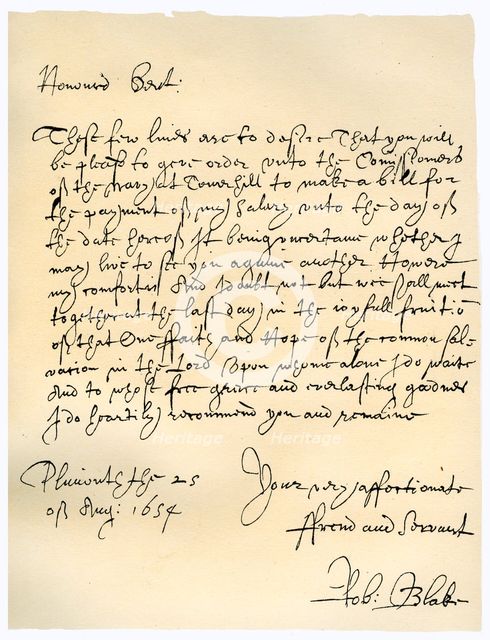 Honourd Sert:
These few lines are to desire That you will
be please to geve order unto the Comissioners
of the Navy at Towerhill to make a bill for
the payment of my Salary unto the day of
the date hereof It being uncertaine whether I
may live to see you againe another Howere
my comfort is And I doubt not but wee shall meet
together at the last day in the ioyfull fruitio
of that One ffaith and Hope of the common Sal-
vation in the Lord Upon whome alone I do waite
And to whose free grace and everlasting goodnes
I do heartily recommend you and remaine
Plimouth the 25
of Aug: 1654
Your very affectionate
ffrend and Servant
Rob: Blake
Heritage Heritage